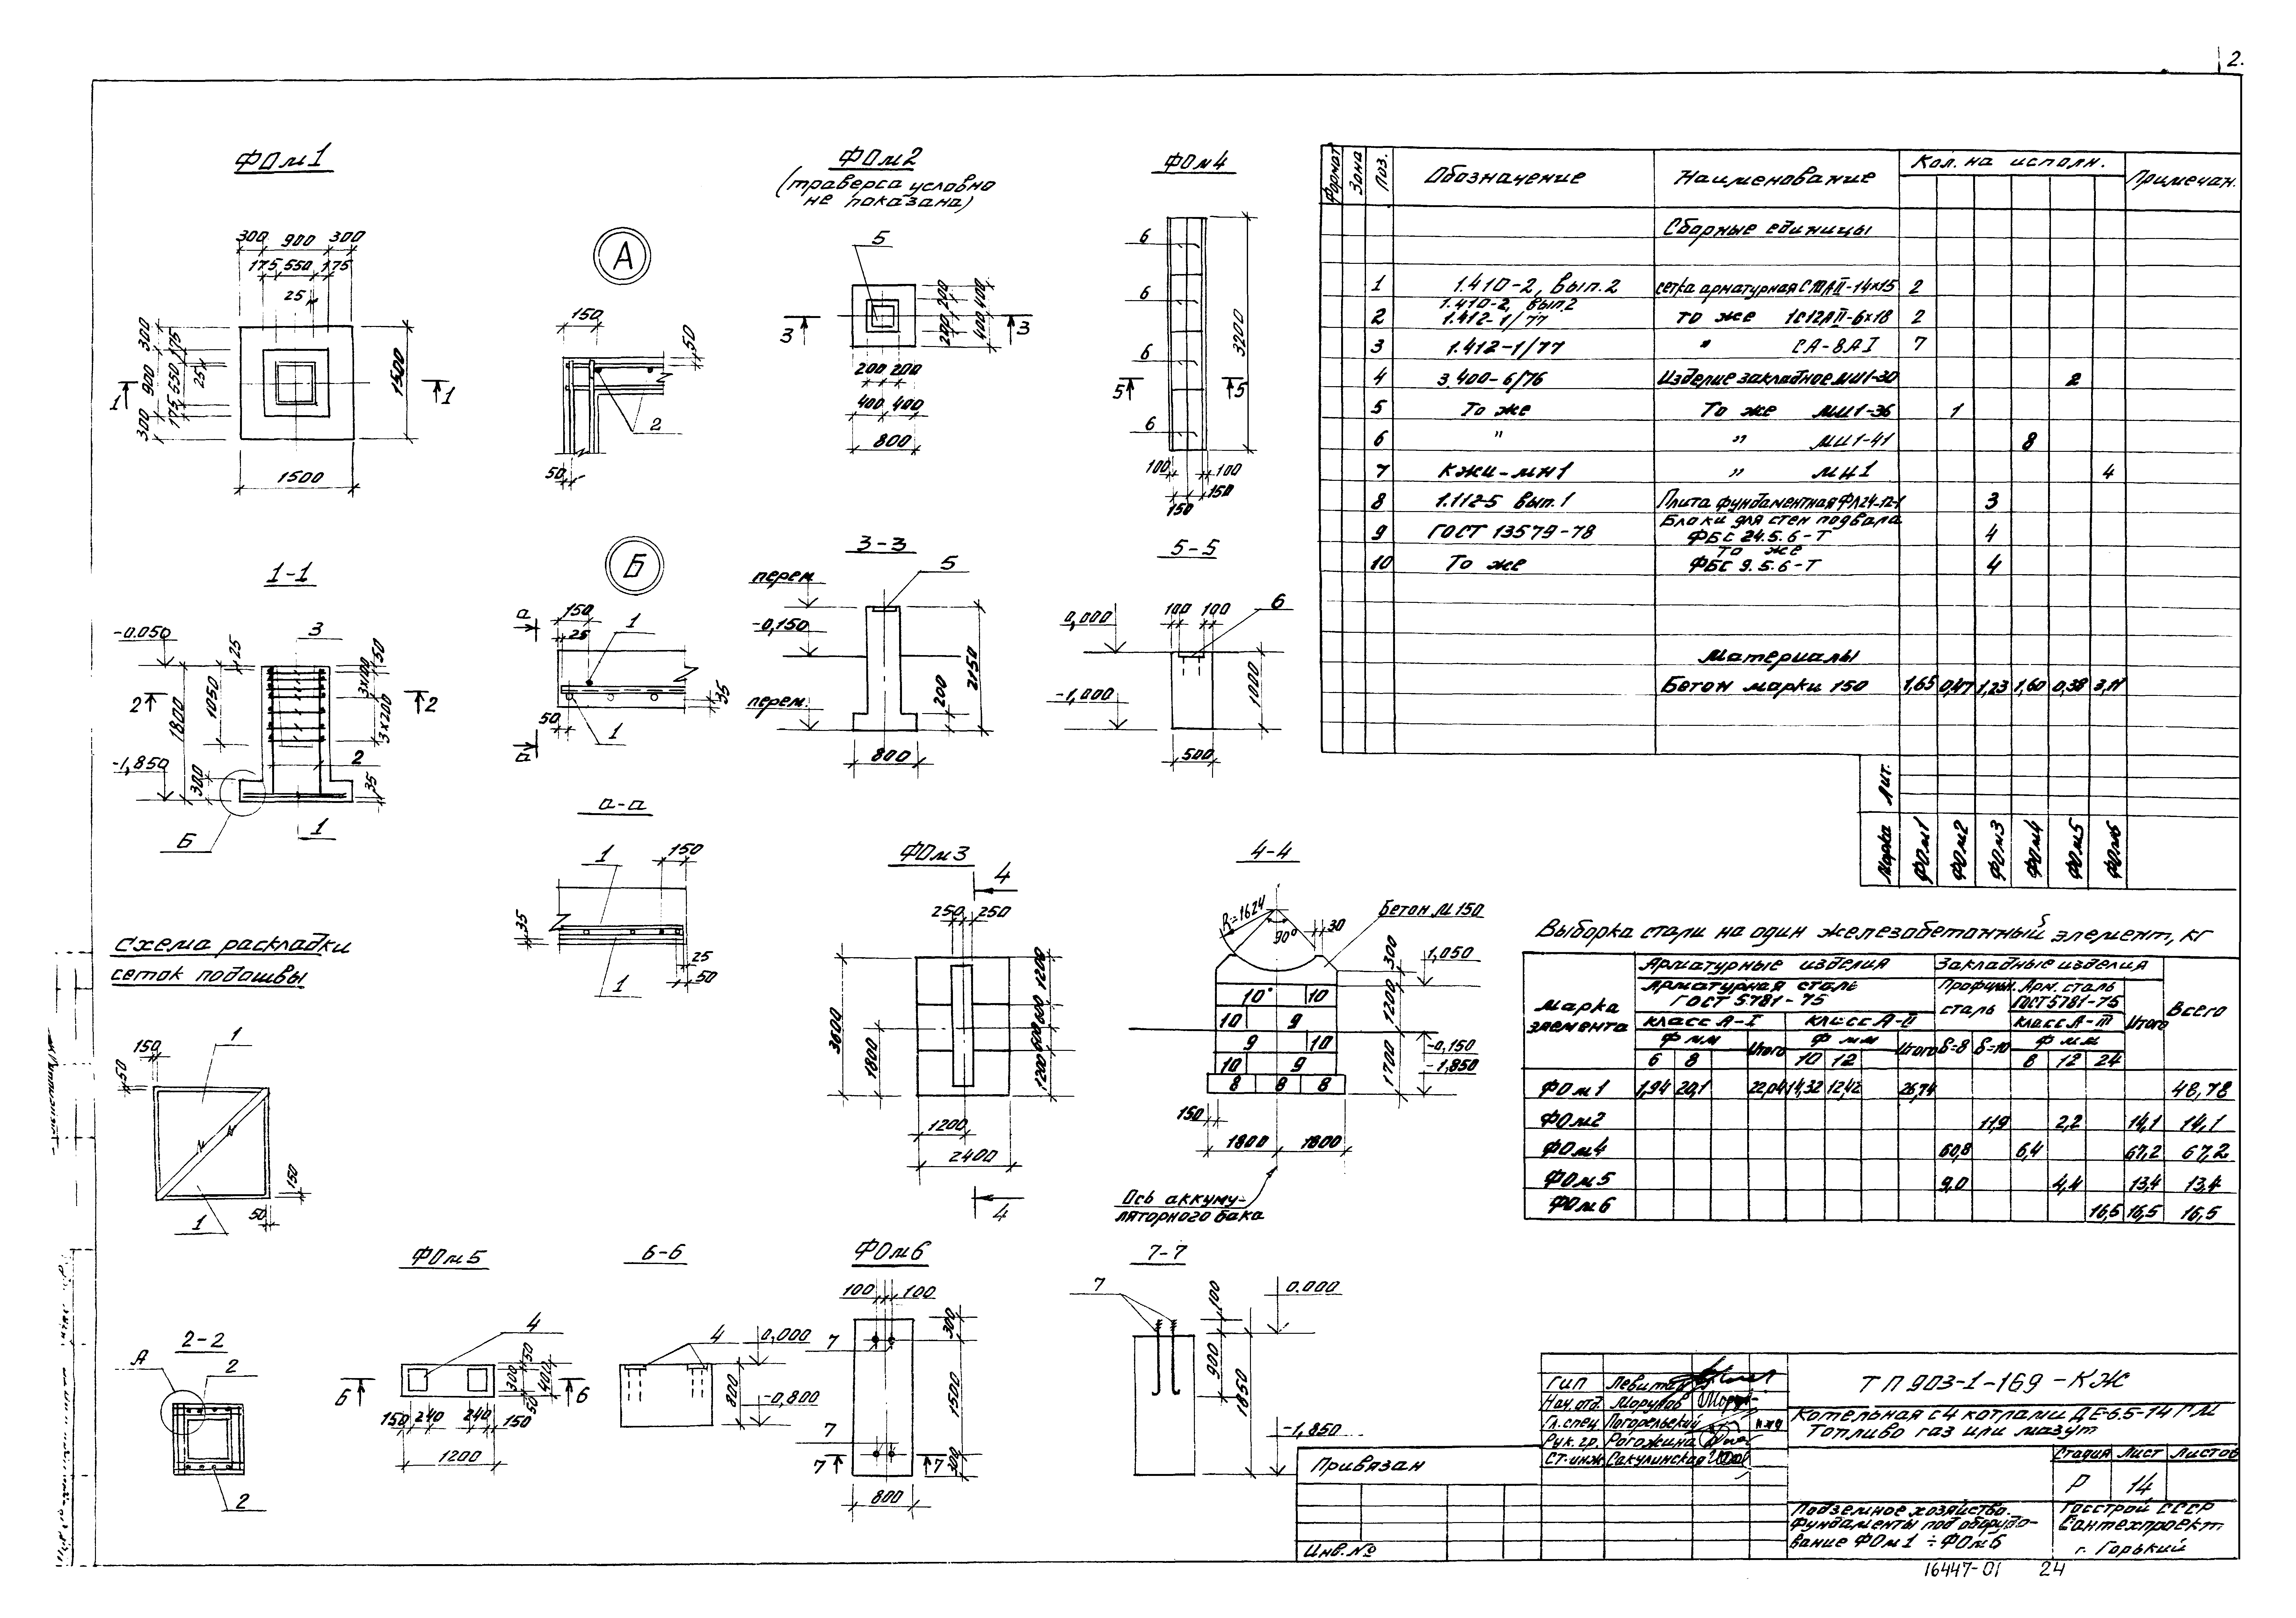 2.
ФОм1
300 900 300
175 550 175
25
300 900 300
175 550 175
25
1500
1500
1 1
А
150
50
2
50
ФОм2
(траверса условно
не показана)
5
200 400
200 400
3 3
200 200
400 400
800
ФОм4
6
6
6
6
3200
5 5
100 100
150 150
1-1
-0.050
3
25
50
3х100
1050
1800
2 2
3х200
2
-1,850
300
35
Б
1
Б
а
150
1
25
35
50
1
а
3-3
перем.
5
-0,150
2150
200
перем.
800
5-5
0,000
100 100
6
1000
-1,000
500
а-а
1
150
35
25
50
1
Схема раскладки
сеток подошвы
150
50
1
150
1
50
ФОм3
4
250 250
1200
600
600
1200
3600
1800
1200
2400
4
4-4
R=1624
90°
30
Бетон М150
1,050
300
1200
10 10
10 9
9 10
10 9
8 8 8
-0,150
-1,850
1700
150
1800 1800
Ось аккуму-
ляторного бака
2-2
А
2
2
ФОм5
4
50
300
50
400
6 6
150 240 240 150
1200
6-6
4 0,000
800
-0,800
ФОм6
100 100
300
7
1500
7
300
7 7
800
7-7
7
100
0.000
900
1850
-1,850
Формат Зона Поз. Обозначение Наименование Кол. на исполн. Примечан.
Сборные единицы
1 1.410-2, вып.2 сетка арматурная С10АII-14х15 2
1.410-2, вып.2
2 1.412-1/77 то же 1С12АII-6х18 2
3 1.412-1/77 " СА-8АI 7
4 3.400-6/76 Изделие закладное МИ1-30 2
5 То же То же МИ1-36 1
6 " " МИ1-41 8
7 КЖИ-МН1 " МН1 4
8 1.112-5 вып.1 Плита фундаментная ФЛ24-12-1 3
Блоки для стен подвала
9 ГОСТ 13579-78 ФБС 24.5.6-Т 4
то же
10 То же ФБС 9.5.6-Т 4
Материалы
Бетон марки 150 1,65 0,47 1,23 1,60 0,38 3,11
Лит.
Марка ФОм1 ФОм2 ФОм3 ФОм4 ФОм5 ФОм6
Выборка стали на один железобетонный элемент, кг
Марка элемента Арматурные изделия Закладные изделия Всего
Арматурная сталь ГОСТ 5781-75 Профильн. сталь Арм. сталь ГОСТ 5781-75 Итого
класс А-I класс А-II класс А-III
Ф мм Итого Ф мм Итого δ=8 δ=10 Ф мм
6 8 10 12 8 12 24
ФОм1 1,94 20,1 22,04 14,32 12,42 26,74 48,78
ФОм2 11,9 2,2 14,1 14,1
ФОм4 60,8 6,4 67,2 67,2
ФОм5 9,0 4,4 13,4 13,4
ФОм6 16,5 16,5 16,5
Гип Левитан
Нач.отд. Морунов
Гл.спец Погорельский
Рук.гр. Рогожина
Ст.инж Сакулинская
ТП 903-1-169 -КЖ
Котельная с 4 котлами ДЕ-6,5-14ГМ
Топливо газ или мазут
Стадия Лист Листов
Р 14
Привязан
Инв.№
Подземное хозяйство.
Фундаменты под оборудо-
вание ФОм1÷ФОм6
Госстрой СССР
Сантехпроект
г. Горький
16447-01 24